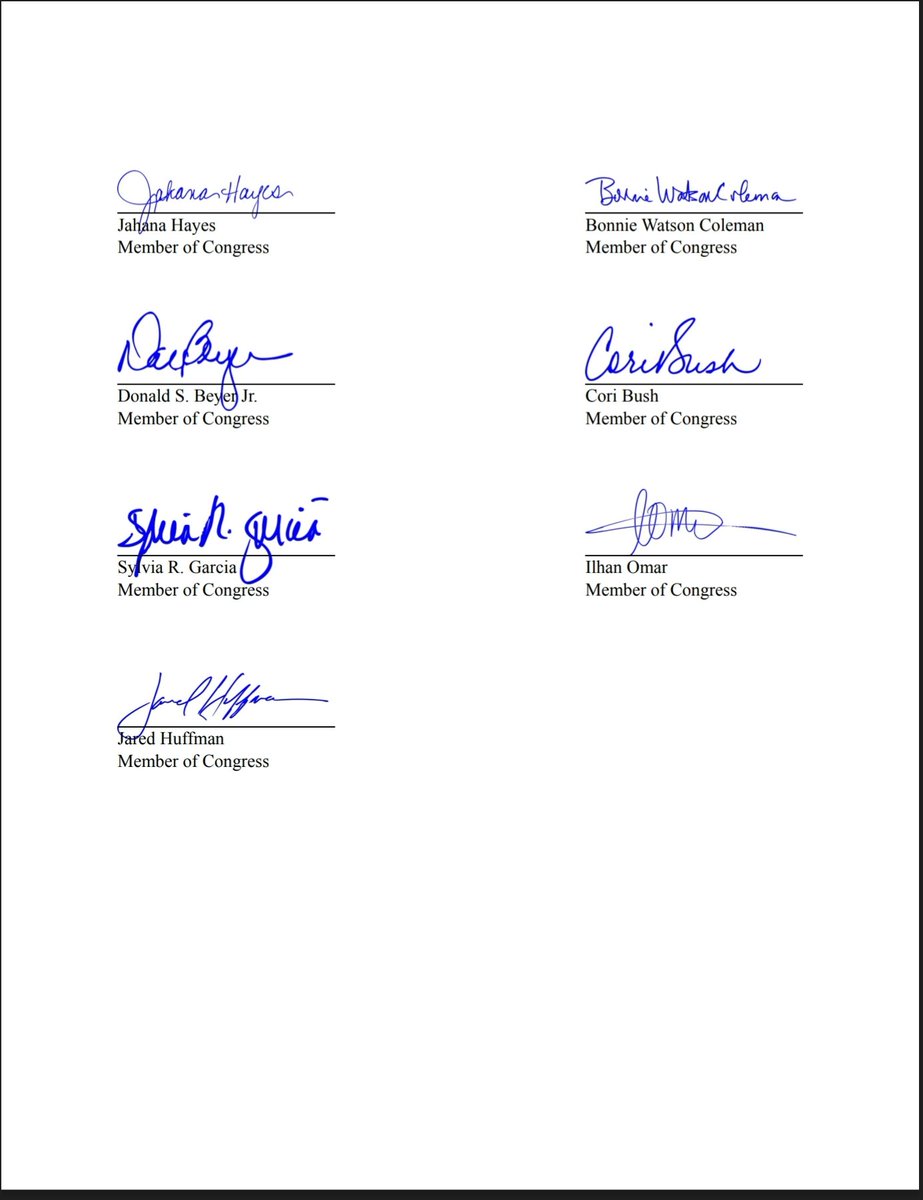 Jahana Hayes
Jahana Hayes
Member of Congress
Bonnie Watson Coleman
Bonnie Watson Coleman
Member of Congress
Don Beyer
Donald S. Beyer Jr.
Member of Congress
Cori Bush
Cori Bush
Member of Congress
Sylvia R. Garcia
Sylvia R. Garcia
Member of Congress
Ilhan Omar
Member of Congress
Jared Huffman
Jared Huffman
Member of Congress